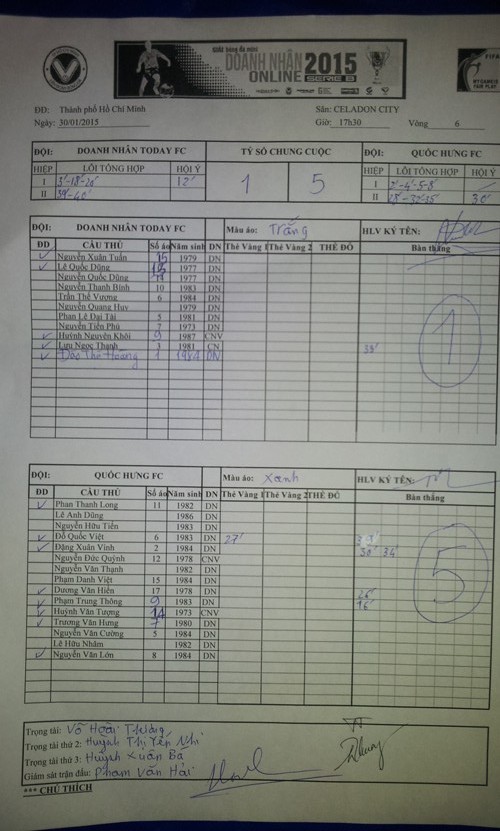 Giải bóng đá mini
DOANH NHÂN 2015
ONLINE SERIE B
FIFA
MY GAME IS
FAIR PLAY
ĐĐ: Thành phố Hồ Chí Minh Sân: CELADON CITY
Ngày: 30/01/2015 Giờ: 17h30 Vòng 6
ĐỘI: DOANH NHÂN TODAY FC TỶ SỐ CHUNG CUỘC ĐỘI: QUỐC HƯNG FC
HIỆP LỖI TỔNG HỢP HỘI Ý 1 5 HIỆP LỖI TỔNG HỢP HỘI Ý
I 3'-18'-20' 12' I 2'-4'-5'-8'
II 39'-40' II 30'
ĐỘI: DOANH NHÂN TODAY FC Màu áo: Trắng HLV KÝ TÊN:
ĐD CẦU THỦ Số áo Năm sinh DN Thẻ Vàng 1 Thẻ Vàng 2 THẺ ĐỎ Bàn thắng
Nguyễn Xuân Tuấn 15 1979 DN
Lê Quốc Dũng 1977 DN
Nguyễn Quốc Dũng 1977 DN
Nguyễn Thanh Bình 10 1983 DN
Trần Thế Vương 6 1984 DN
Nguyễn Quang Huy 1979 DN
Phan Lê Đại Tài 5 1981 DN
Nguyễn Tiến Phú 7 1973 DN
Huỳnh Nguyên Khôi 9 1987 CNV
Lưu Ngọc Thạnh 3 1981 CN
Đào Thế Hoàng 1 1984 DN
1
ĐỘI: QUỐC HƯNG FC Màu áo: Xanh HLV KÝ TÊN:
ĐD CẦU THỦ Số áo Năm sinh DN Thẻ Vàng 1 Thẻ Vàng 2 THẺ ĐỎ Bàn thắng
Phan Thanh Long 11 1982 DN
Lê Anh Dũng 1986 DN
Nguyễn Hữu Tiến 1983 DN
Đỗ Quốc Việt 6 1983 DN 27'
Đặng Xuân Vinh 2 1984 DN 30' 34'
Nguyễn Đức Quỳnh 12 1978 CNV
Nguyễn Văn Thạnh 1982 DN
Phạm Danh Việt 15 1984 DN
Dương Văn Hiền 17 1978 DN
Phạm Trung Thông 9 1983 DN 16'
Huỳnh Văn Tượng 14 1973 CNV
Trương Văn Hưng 7 1980 DN
Nguyễn Văn Cường 5 1984 DN
Lê Hữu Nhâm 1982 DN
Nguyễn Văn Lớn 8 1984 DN
5
Trọng tài: Võ Hoài Thương
Trọng tài thứ 2: Huỳnh Thị Yến Nhi
Trọng tài thứ 3: Huỳnh Xuân Bá
Giám sát trận đấu: Phạm Văn Hải
*** CHÚ THÍCH